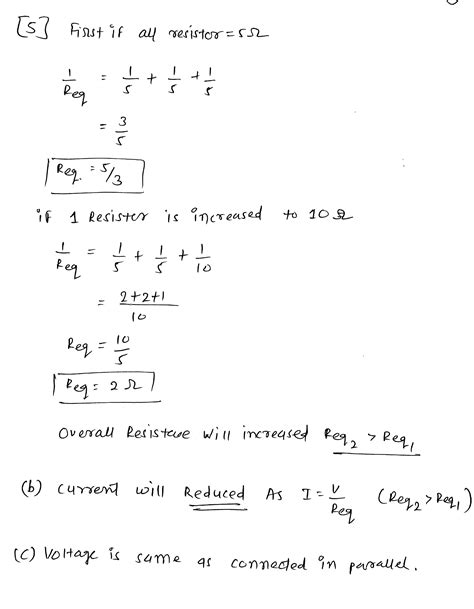 [5] First if all resistor = 5Ω
1/Req = 1/5 + 1/5 + 1/5
= 3/5
Req. = 5/3
if 1 Resister is increased to 10 Ω
1/Req = 1/5 + 1/5 + 1/10
= 2+2+1/10
Req = 10/5
Req = 2 Ω
Overall Will increased Req2 > Req1
(b) current will Reduced As I = V/Req (Req2 > Req1)
(c) Voltage is same as connected in parallel.